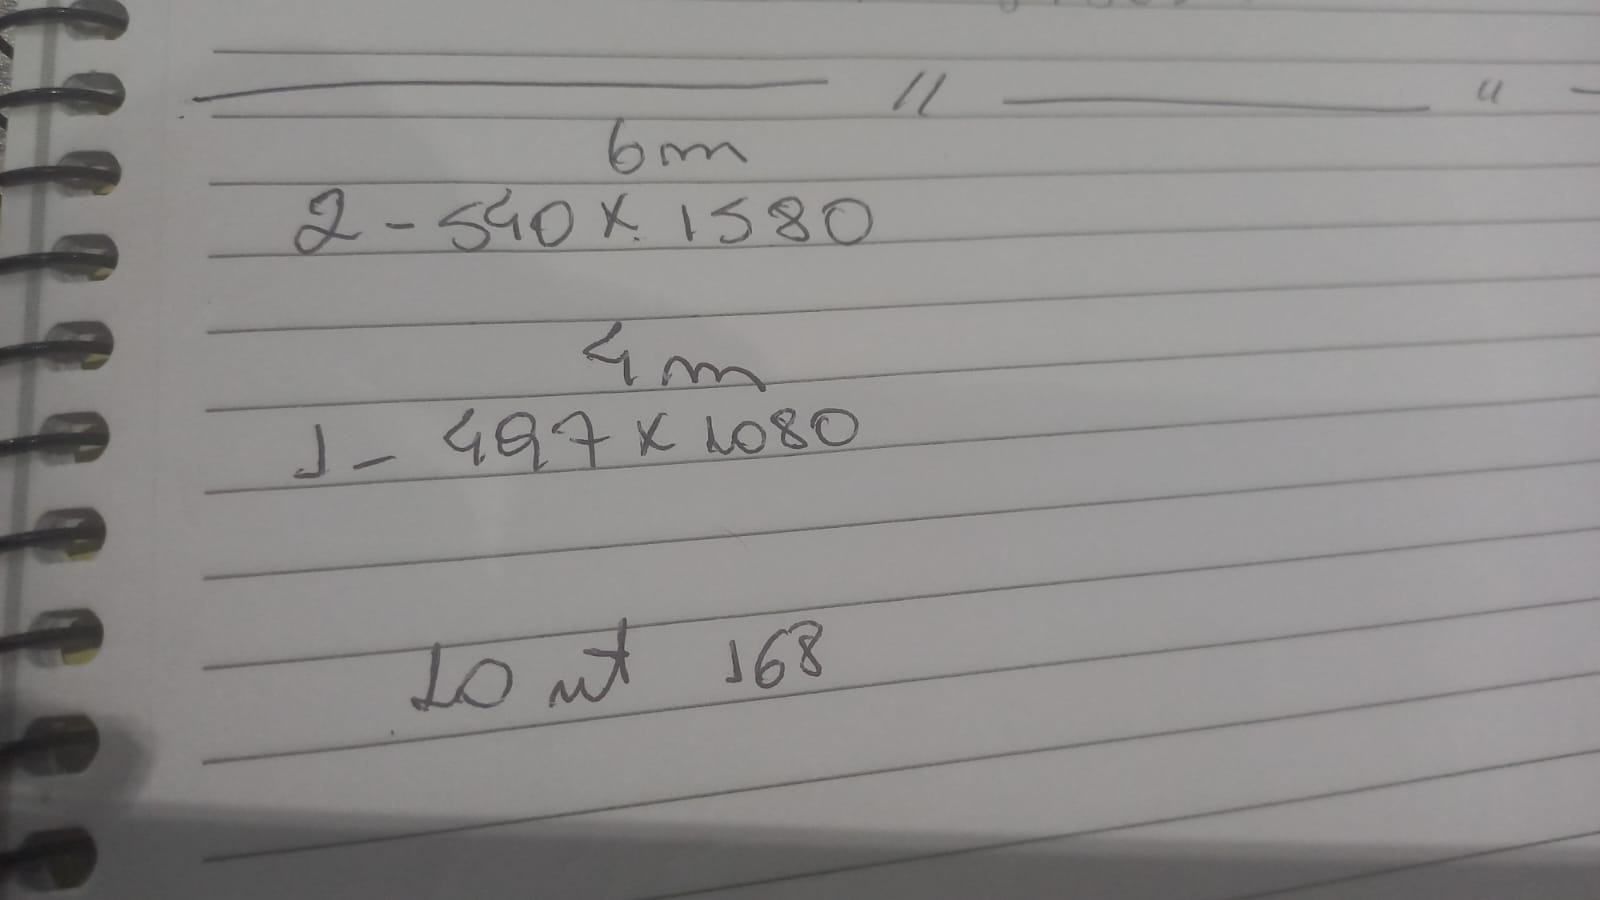 6m
2 - 540 x 1580
4m
1 - 497 x 1080
10 mt 168